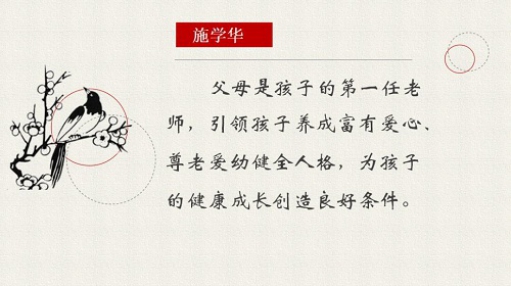 施学华
父母是孩子的第一任老
师，引领孩子养成富有爱心、
尊老爱幼健全人格，为孩子
的健康成长创造良好条件。